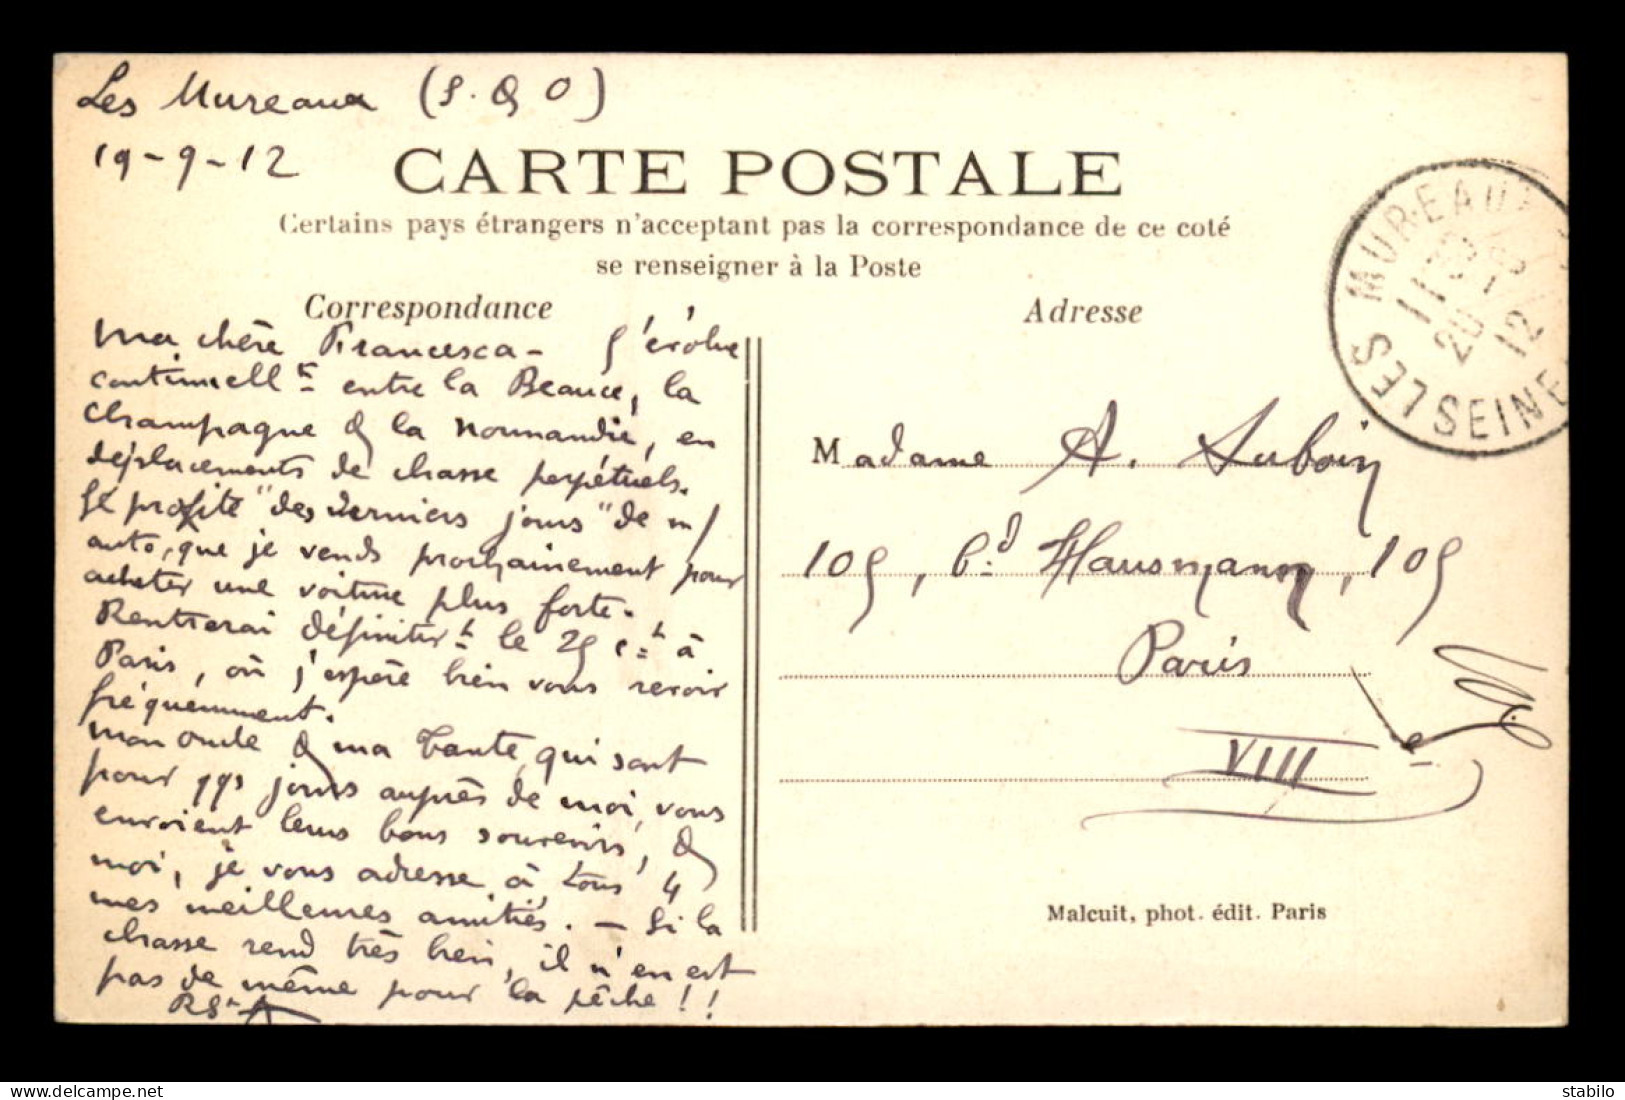 Les Mureaux (S. & O)
19-9-12
CARTE POSTALE
Certains pays étrangers n'acceptant pas la correspondance de ce coté
se renseigner à la Poste
Correspondance
Ma chère Francesca - J'évolue
continuellt entre la Beauce, la
Champagne & la Normandie, en
déplacements de chasse perpétuels.
Je profite "des derniers jours" de m/
auto, que je vends prochainement pour
acheter une voiture plus forte.
Rentrerai définitivt le 25 ct à
Paris, où j'espère bien vous revoir
fréquemment.
Mon oncle & ma tante, qui sont
pour qqs jours auprès de moi, vous
envoient leurs bons souvenirs, &
moi, je vous adresse à tous 4
mes meilleures amitiés. - Si la
chasse rend très bien, il n'en est
pas de même pour la pêche !!
Adresse
LES MUREAUX
SEINE
11 35
20 - 9
12
Madame A. Auboin
105, bd Hausmann, 105
Paris
VIIIe
Malcuit, phot. édit. Paris
delcampe.net
stabilo